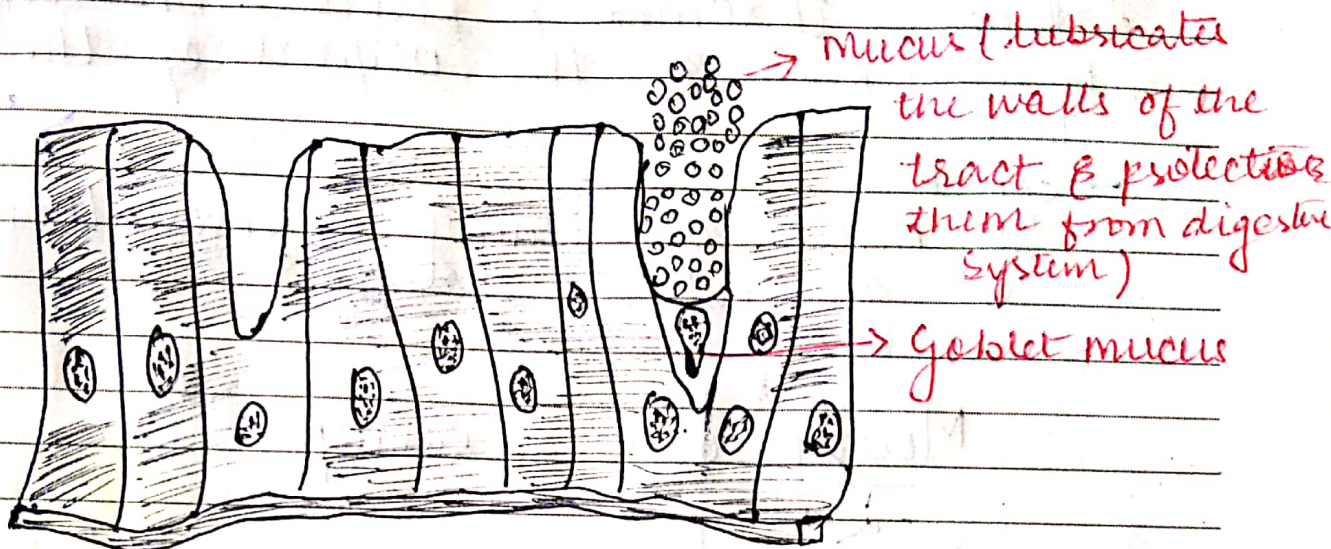 mucus (lubricates
the walls of the
tract & protection
them from digestive
system)
Goblet mucus